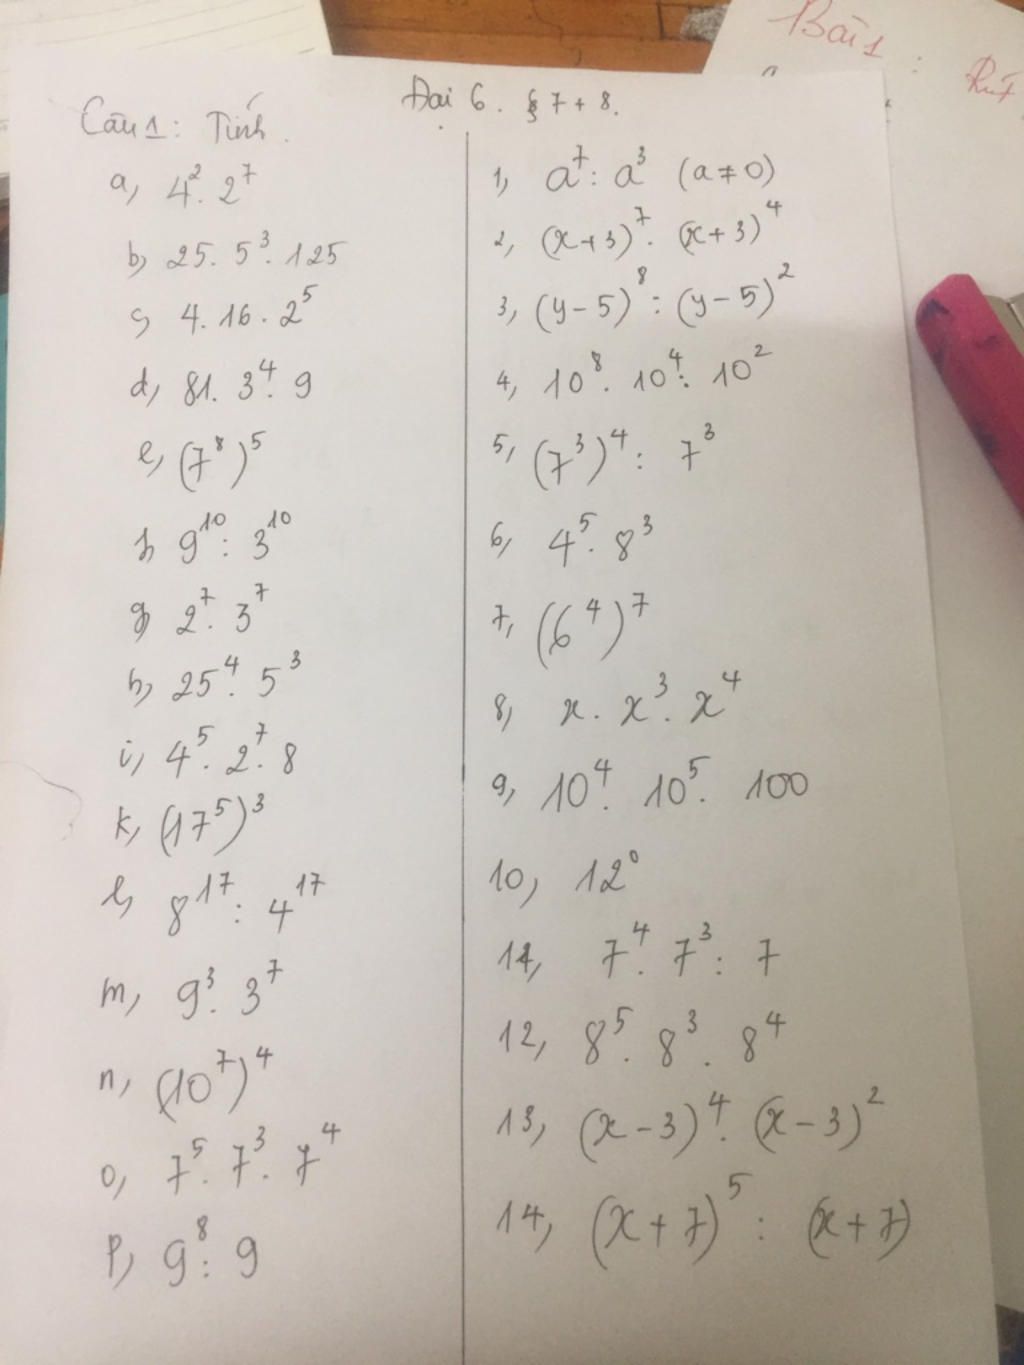 Đại 6. § 7 + 8.
Câu 1: Tính.
a, 4². 2⁷
b, 25. 5³. 125
c, 4. 16. 2⁵
d, 81. 3⁴. 9
e, (7⁸)⁵
f, 9¹⁰ : 3¹⁰
g, 2⁷. 3⁷
h, 25⁴. 5³
i, 4⁵. 2⁷. 8
k, (17⁵)³
l, 8¹⁷ : 4¹⁷
m, 9³. 3⁷
n, (10⁷)⁴
o, 7⁵. 7³. 7⁴
p, 9⁸ : 9
1, a⁷ : a³ (a ≠ 0)
2, (x+3)⁷. (x+3)⁴
3, (y-5)⁸ : (y-5)²
4, 10⁸. 10⁴ : 10²
5, (7³)⁴ : 7³
6, 4⁵. 8³
7, (6⁴)⁷
8, x. x³. x⁴
9, 10⁴. 10⁵. 100
10, 12⁰
11, 7⁴. 7³ : 7
12, 8⁵. 8³. 8⁴
13, (x-3)⁴. (x-3)²
14, (x+7)⁵ : (x+7)
Bài 1 :